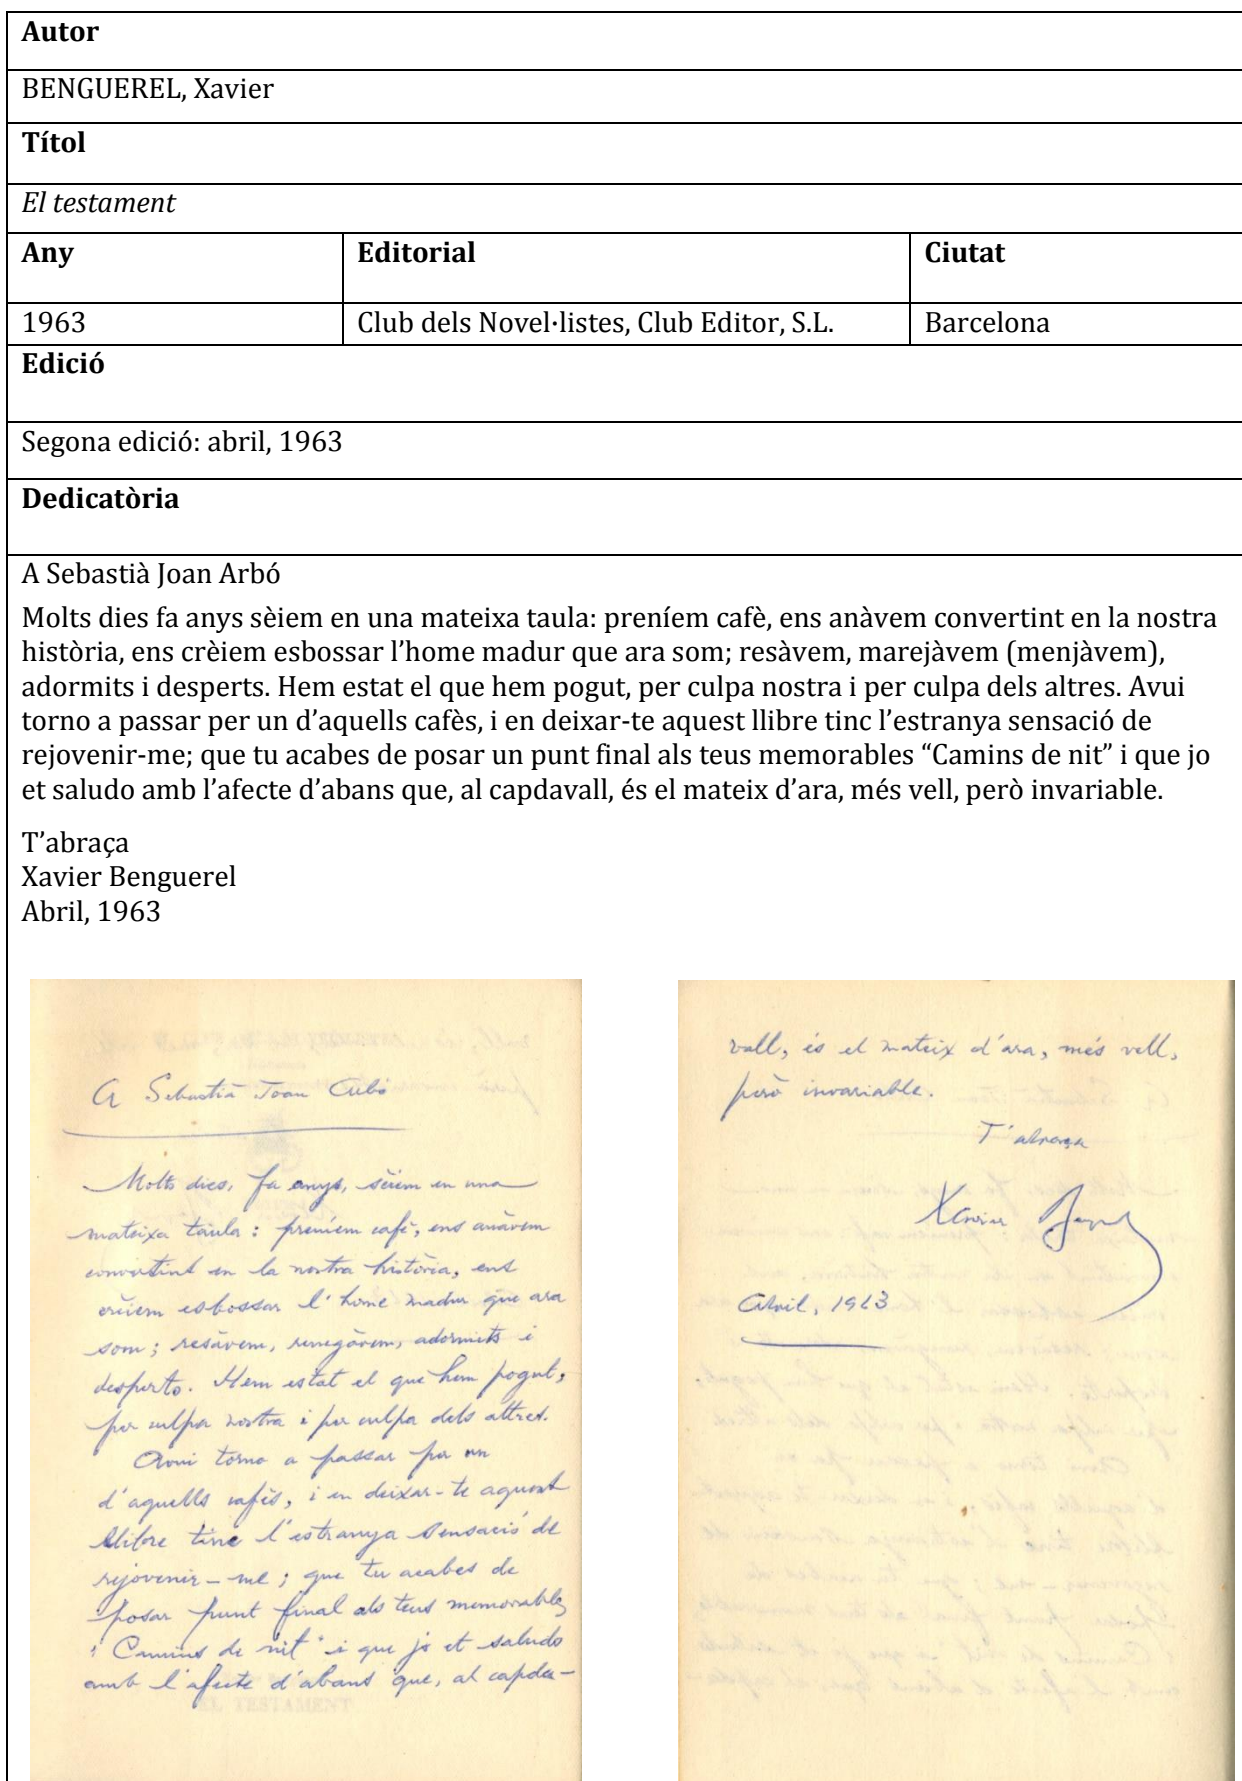 Autor
BENGUEREL, Xavier
Títol
El testament
Any Editorial Ciutat
1963 Club dels Novel·listes, Club Editor, S.L. Barcelona
Edició
Segona edició: abril, 1963
Dedicatòria
A Sebastià Joan Arbó
Molts dies fa anys sèiem en una mateixa taula: preníem cafè, ens anàvem convertint en la nostra
història, ens crèiem esbossar l’home madur que ara som; resàvem, marejàvem (menjàvem),
adormits i desperts. Hem estat el que hem pogut, per culpa nostra i per culpa dels altres. Avui
torno a passar per un d’aquells cafès, i en deixar-te aquest llibre tinc l’estranya sensació de
rejovenir-me; que tu acabes de posar un punt final als teus memorables “Camins de nit” i que jo
et saludo amb l’afecte d’abans que, al capdavall, és el mateix d’ara, més vell, però invariable.
T’abraça
Xavier Benguerel
Abril, 1963
A Sebastià Joan Arbó
Molts dies, fa anys, sèiem en una
mateixa taula: preníem cafè, ens anàvem
convertint en la nostra història, ens
crèiem esbossar l'home madur que ara
som; resàvem, renegàvem, adormits i
desperts. Hem estat el que hem pogut,
per culpa nostra i per culpa dels altres.
Avui torno a passar per un
d'aquells cafès, i en deixar-te aquest
llibre tinc l'estranya sensació de
rejovenir-me; que tu acabes de
posar punt final als teus memorables
"Camins de nit" i que jo et saludo
amb l'afecte d'abans que, al capda-
EL TESTAMENT
vall, és el mateix d'ara, més vell,
però invariable.
T'abraça
Xavier
Abril, 1963